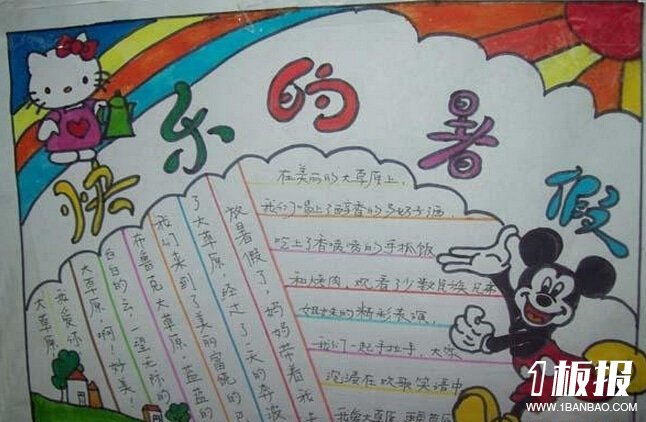 快乐的暑假
放暑假了，妈妈带着我
了大草原，经过了一天的奔波
我们来到了美的富饶的
布鲁克大草原 蓝蓝的
白白的云，一望无际的
大草原啊！好美！
我爱你
大草原
在美丽的大草原上，
我们喝上了醇香的马奶子酒，
吃上了香喷喷的手抓饭
和烤肉，观看了少数民族兄弟
姐妹的精彩表演，
我们一起手拉手，大家
沉浸在欢歌笑语中
我爱大草原
1板报
WWW.1BANBAO.COM